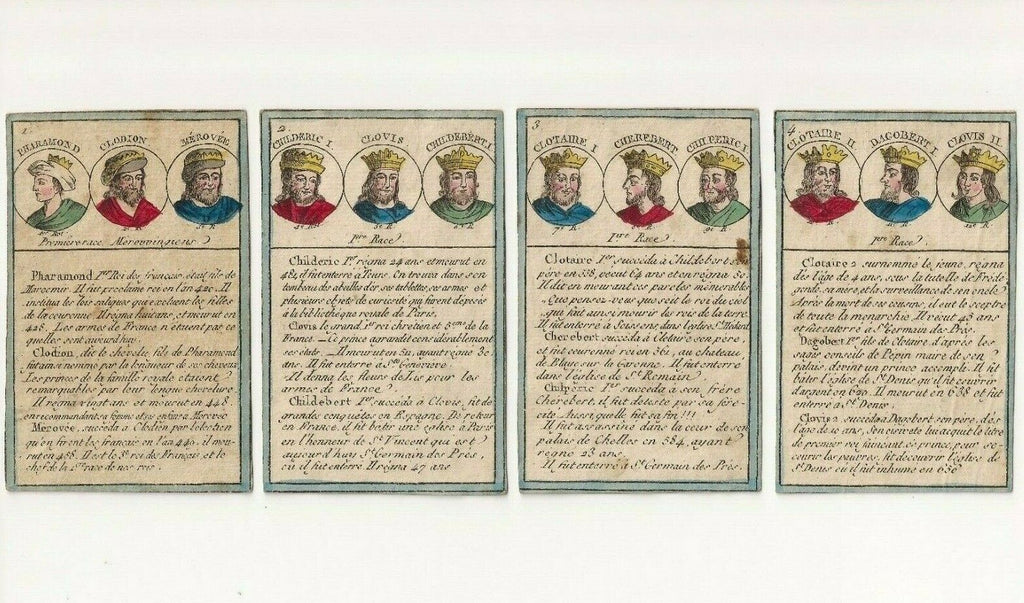 1
PHARAMOND CLODION MÉROVÉE
1er Roi 2e R. 3e R.
Premiere race Merovingiens
Pharamond 1er Roi des francois etait fils de
Marcomir. Il fut proclamé roi en l'an 420. Il
institua les lois saliques qui excluent les filles
de la couronne. Il regna huit ans et mourut en
428. Les armes de France n'étaient pas ce
quelles sont aujourd'hui.
Clodion, dit le chevelu, fils de Pharamond
fut ainsi nommé par la longueur de ses cheveux
Les princes de la famille royale etaient
remarquables par leur longue chevelure.
Il regna vingt ans et mourut en 448
en recommandant sa femme et ses enfans a Merovée
Merovée, succeda à Clodion par l'election
qu'en firent les français en l'an 448. il mou-
rut en 458. Il est le 3e roi des Français et le
chef de la 1ere race de nos rois.
2
CHILDERIC I CLOVIS CHILDEBERT I
4e Roi 5e R. 6e R.
1ere Race
Childeric 1er regna 24 ans et mourut en
484 il fut enterré a Tours. On trouva dans son
tombeau des abeilles d'or, ses tablettes, ses armes et
plusieurs objets de curiosité qui furent déposés
à la bibliothèque royale de Paris.
Clovis le grand 1er roi chretien et 5eme de la
France. Ce prince agrandit considérablement
ses états. Il mourut en 511, ayant regné 30
ans. Il fut enterré a Ste Geneviève.
Il donna les fleurs de Lis pour les
armes de France.
Childebert 1er succéda à Clovis, fit de
grandes conquêtes en Espagne. De retour
en France, il fit batir une eglise à Paris
en l'honneur de St Vincent qui est
aujourd'hui St Germain des Prés,
où il fut enterré Il régna 47 ans
3
CLOTAIRE I CHEREBERT CHILPERIC I
7e R. 8e R. 9e R.
1ere Race
Clotaire 1er succéda à Childebert son
père en 558, vecut 64 ans et en regna 50.
Il dit en mourant ces paroles mémorables
Que pensez-vous que soit le roi du ciel
qui fait ainsi mourir les rois de la terre.
Il fut enterré a Soissons dans l'eglise St Medard
Cherebert succéda à Clotaire son père,
et fut couronné roi en 561, au chateau
de Blaye sur la Garonne. Il fut enterré
dans l'eglise de St Romain
Chilpéric 1er succeda a son frère
Cherebert, il fut detesté par sa féro-
cité Aussi quelle fut sa fin!!!
Il fut assassiné dans la cour de son
palais de Chelles en 584, ayant
regné 23 ans.
Il fut enterré a St Germain des Prés.
4
CLOTAIRE II DAGOBERT I CLOVIS II
R. 11e R. 12e R.
1ere Race
Clotaire 2 surnommé le jeune, regna
dès l'age de 4 ans, sous la tutelle de Frédé-
gonde, sa mère, et la surveillance de son oncle
Après la mort de ses cousins, il eut le sceptre
de toute la monarchie. Il vecut 45 ans
et fut enterré a St Germain des Prés.
Dagobert 1er fils de Clotaire, d'après les
sages conseils de Pepin maire de son
palais, devint un prince accompli. Il fit
batir l'eglise de St Denis qu'il fit couvrir
d'argent en 630. Il mourut en 638 et fut
enterré a St Denis.
Clovis 2 succéda a Dagobert son père, dès
l'age de 10 ans, Son oisiveté lui acquit le titre
de premier roi fainéant. Ce prince, pour se-
courir les pauvres, fit découvrir l'eglise de
St Denis où il fut inhumé en 656